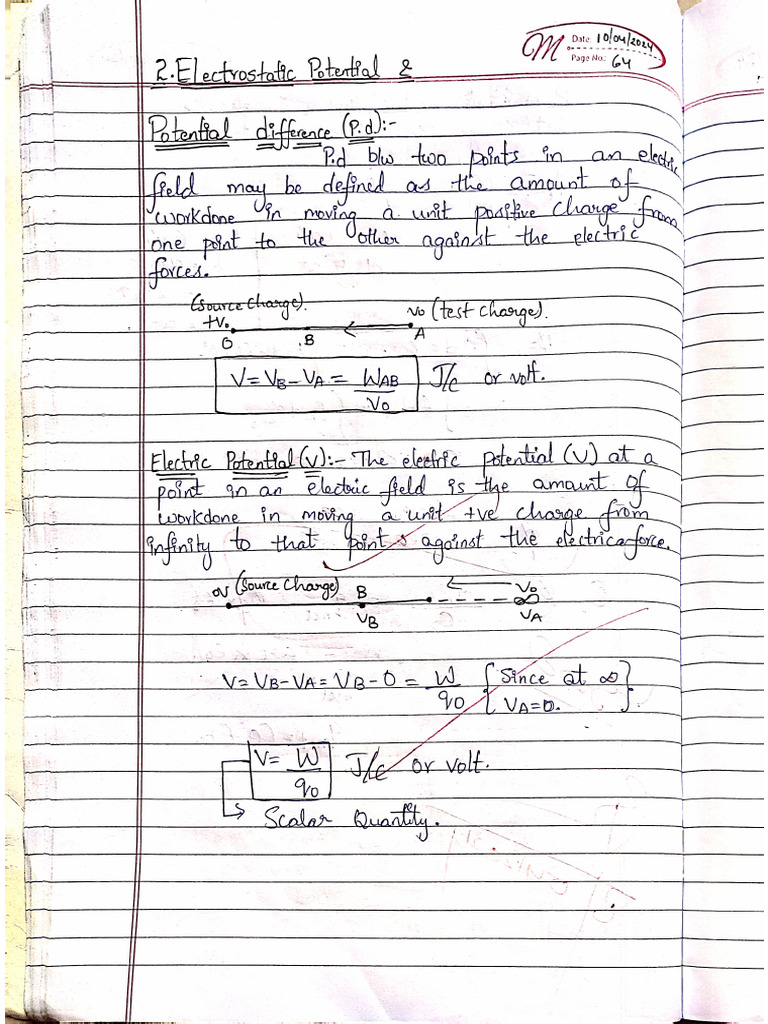 M Date: 10/04/2024
Page No.: 64
2. Electrostatic Potential &
Potential difference (P.d):-
P.d b/w two points in an electric
field may be defined as the amount of
workdone in moving a unit positive charge from
one point to the other against the electric
forces.
(source charge).
+v. v0 (test charge).
O B A
V = VB - VA = WAB / V0 J/C or volt.
Electric Potential (V):- The electric potential (V) at a
point in an electric field is the amount of
workdone in moving a unit +ve charge from
infinity to that point against the electric force.
(source charge) B V0
VB ∞ VA
V = VB - VA = VB - 0 = W / q0 { Since at ∞ VA = 0. }
V = W / q0 J/C or volt.
↳ Scalar Quantity.